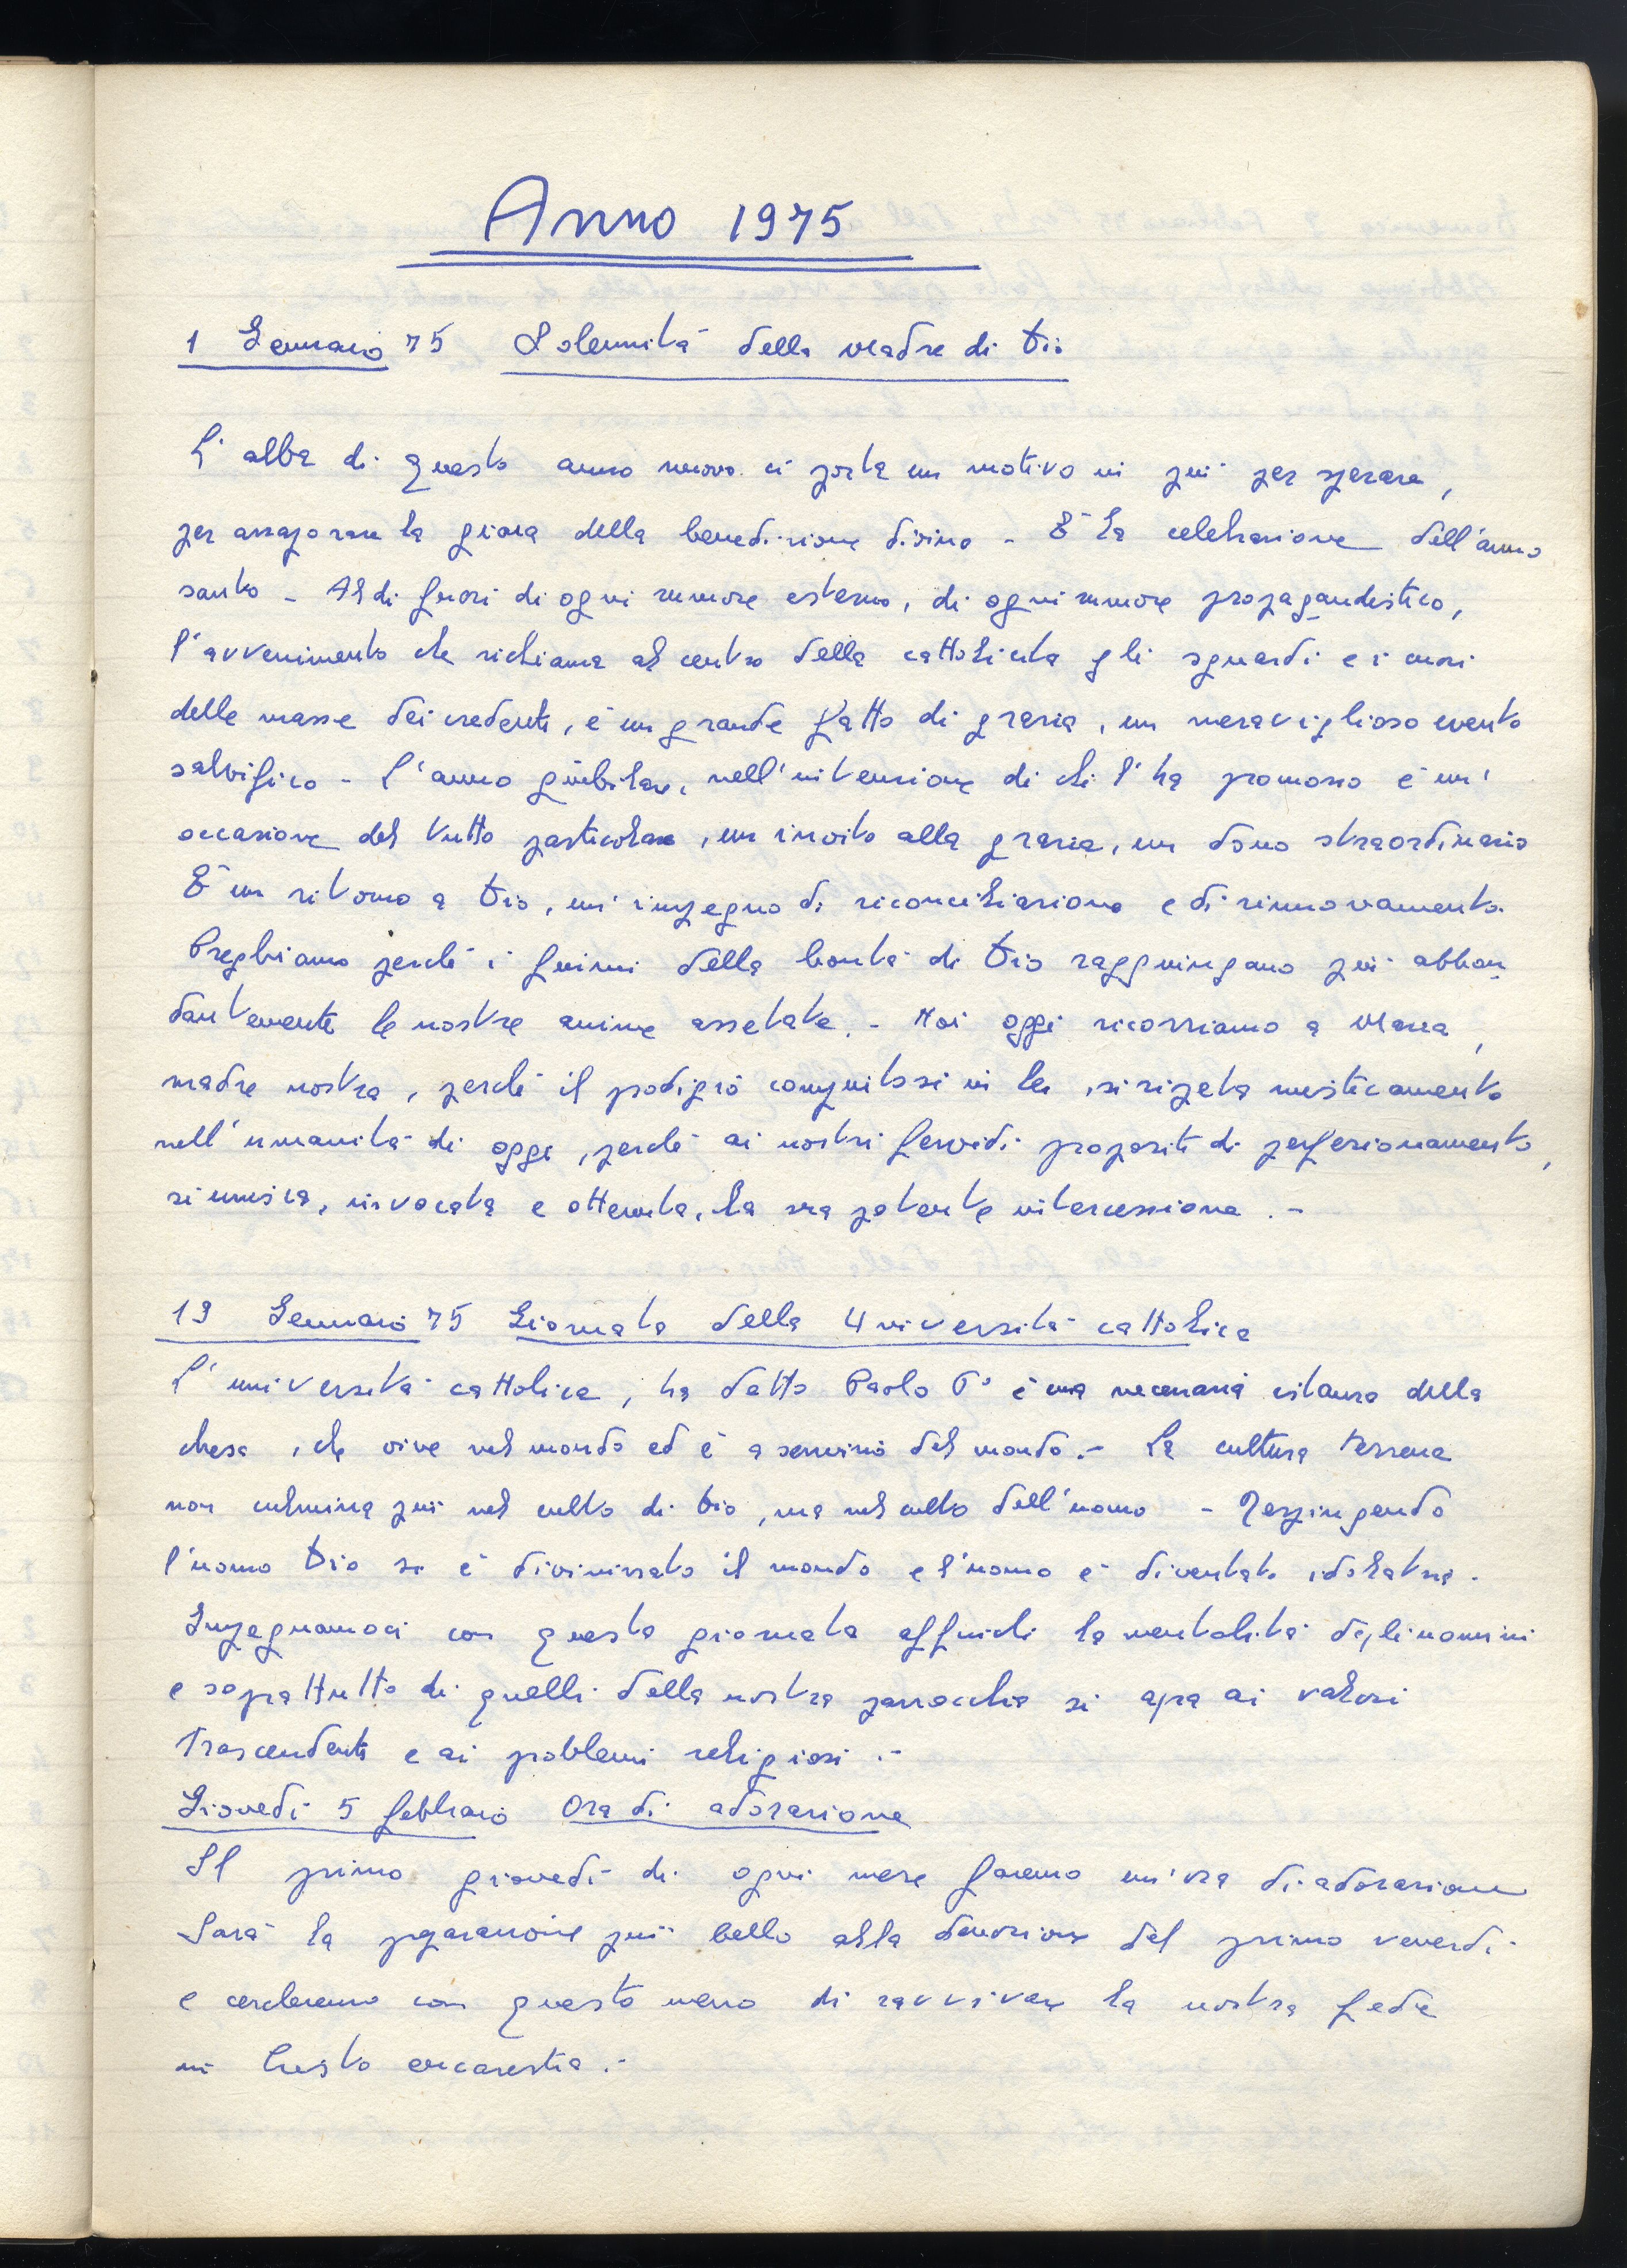 Anno 1975
1 Gennaio 75 Solennità della Madre di Dio
L'alba di questo anno nuovo ci porta un motivo in più per sperare,
per assaporare la gioia della benedizione divina - È la celebrazione dell'anno
santo - Al di fuori di ogni rumore esterno, di ogni rumore propagandistico,
l'avvenimento che richiama al centro della cattolicità gli sguardi e i cuori
delle masse dei credenti, è un grande fatto di grazia, un meraviglioso evento
salvifico - L'anno giubilare, nell'intenzione di chi l'ha promosso è un'
occasione del tutto particolare, un invito alla grazia, un dono straordinario
È un ritorno a Dio, un impegno di riconciliazione e di rinnovamento.
Preghiamo perché i fiumi della bontà di Dio raggiungano più abbon
dantemente le nostre anime assetate. - Noi oggi ricorriamo a Maria,
madre nostra, perché il prodigio compiutosi in lei, si ripeta misticamente
nell'umanità di oggi, perché ai nostri fervidi propositi di perfezionamento,
si unisca, invocata e ottenuta, la sua potente intercessione . -
19 Gennaio 75 Giornata della Università cattolica
L'università cattolica, ha detto Paolo 6° è una necessaria istanza della
chiesa, che vive nel mondo ed è a servizio del mondo. - La cultura terrena
non culmina più nel culto di Dio, ma nel culto dell'uomo - Respingendo
l'uomo Dio si è divinizzato il mondo e l'uomo è diventato idolatra.
Impegnamoci con questa giornata affinché la mentalità degli uomini
e soprattutto di quelli della nostra parrocchia si apra ai valori
Trascendenti e ai problemi religiosi . -
Giovedì 5 febbraio Ora di adorazione
Il primo giovedì di ogni mese faremo un'ora di adorazione
Sarà la preparazione più bella alla devozione del primo venerdì
e cercheremo con questo mezzo di ravvivare la nostra fede
in Cristo eucarestia . -